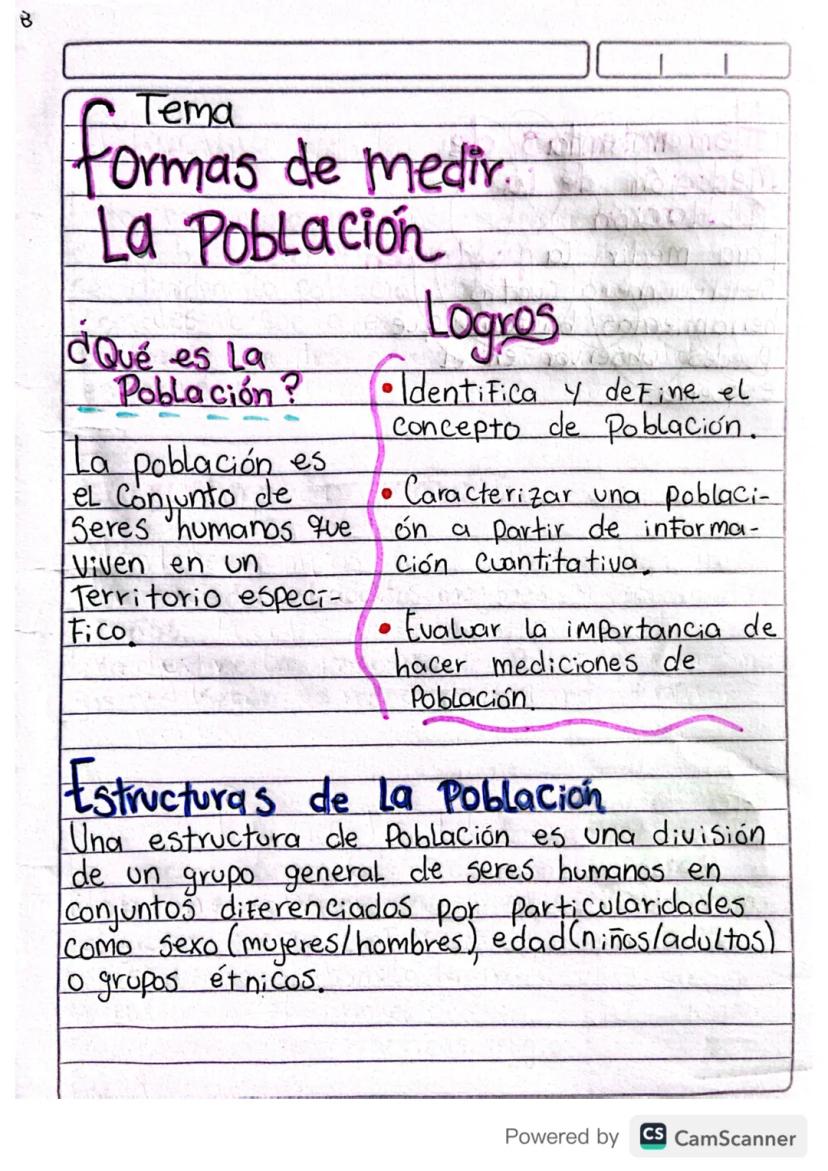 Tema
formas de medir.
La Población
¿Qué es La
Población?
La población es
el Conjunto de
Seres humanos que
viven en un
Territorio especí-
fico.
Logros
• Identifica y define el
concepto de Población.
• Caracterizar una poblaci-
ón a partir de informa-
ción cuantitativa.
• Evaluar la importancia de
hacer mediciones de
Población.
Estructuras de La Población
Una estructura de Población es una división
de un grupo general de seres humanos en
conjuntos diferenciados por particularidades
como sexo (mujeres/hombres), edad (niños/adultos)
o grupos étnicos.
Powered by CS CamScanner